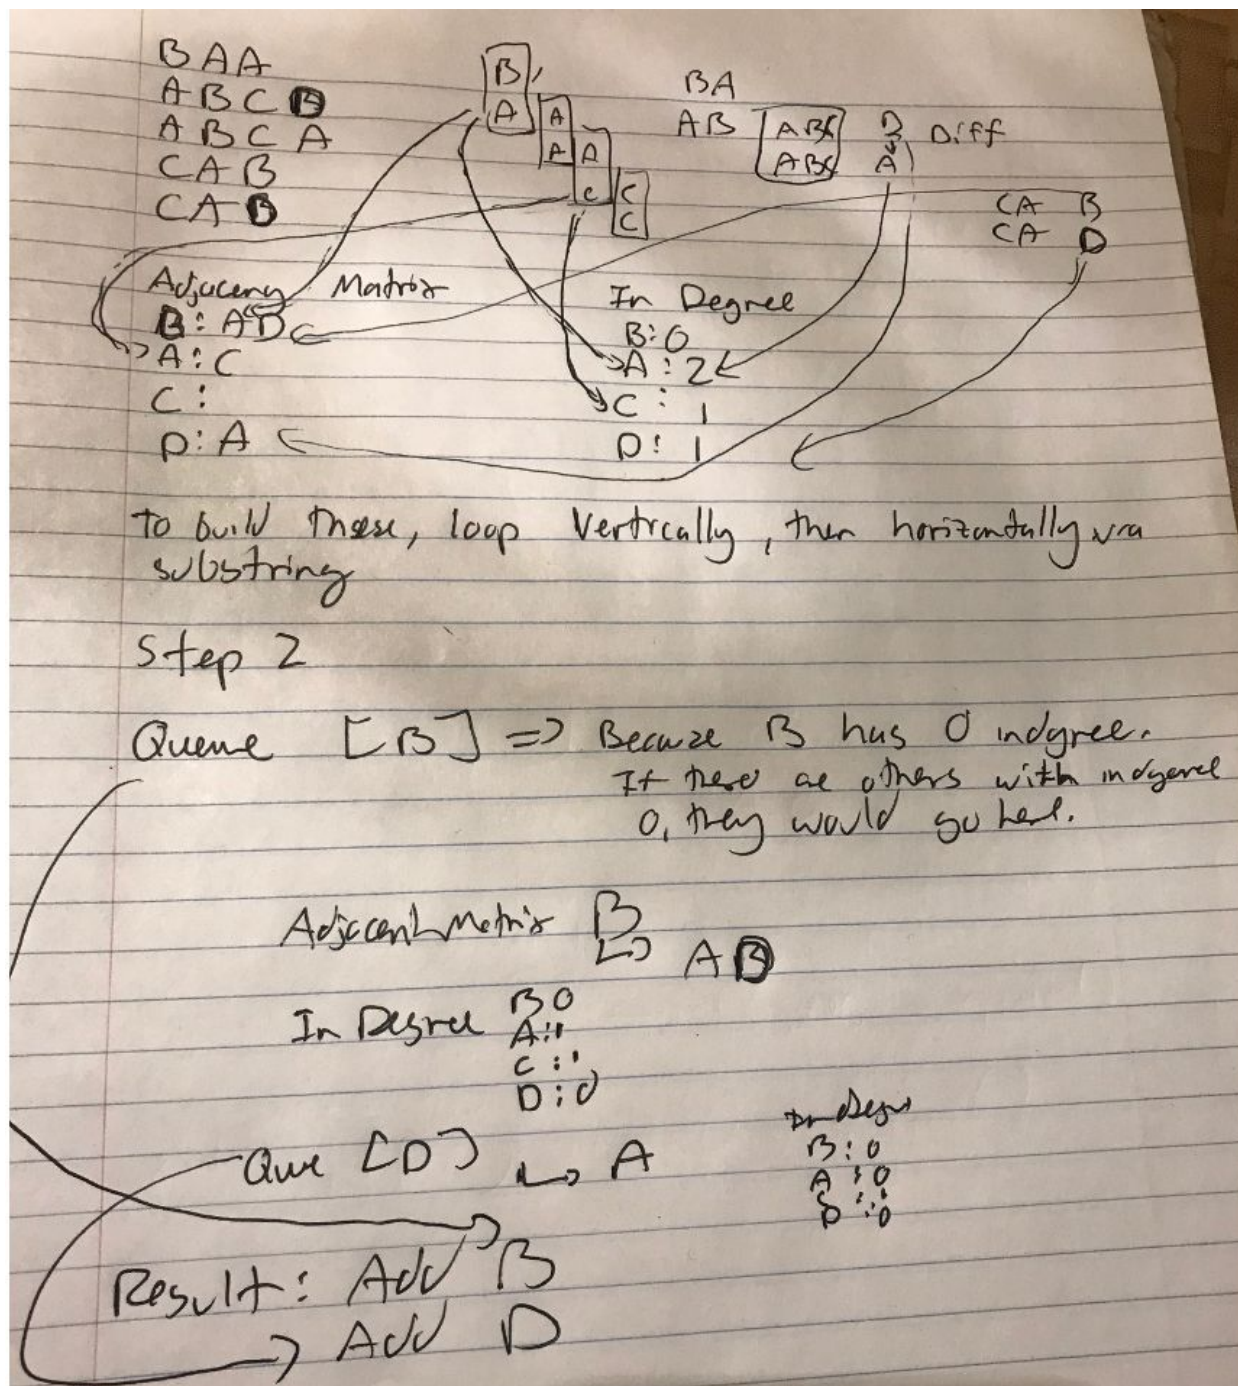 BAA
ABCD
ABCA
CAB
CAD
B
A
A
A
A
C
C
C
BA
AB
ABC D Diff
ABC A
CA B
CA D
Adjaceny Matrix
B: AD
A: C
C:
D: A
In Degree
B: 0
A: 2
C: 1
D: 1
To build these, loop vertically, then horizontally via
substring
Step 2
Queue [B] => Because B has 0 indgree.
If there are others with indgree
0, they would go here.
Adjacent Matrix B
↳ AD
In Degree B 0
A: 1
C: 1
D: 0
Que [D] ↳ A
In Degr
B: 0
A: 0
C: 1
D: 0
Result: Add B
Add D